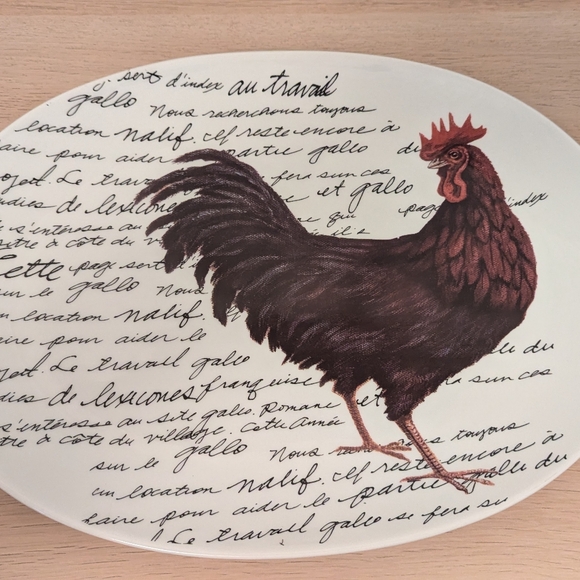 sert d'index au travail
gallo Nous recherchons toujours
location natif. cef reste encore à
aire pour aider partie gallo du
ojet. Le trava fera sun ces
dies de lexicones et gallo
s'intéresse au qui page d'index
tre à côte du vil il s
Cette page sert
sur le gallo Nous
un location natif.
aire pour aider le
jet. Le travail gallo du
dies de lexicones française et la sun ces
s'intéresse au site gallo. Romane
tre à côte du village. Cette Année
sur le gallo Nous toujours
un location natif. cef reste encore à
haire pour aider le partie gallo du
Le travail gallo se fera su